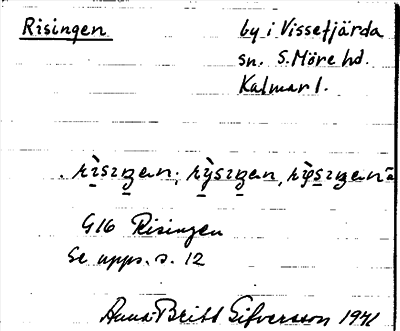 Risingen
by i Vissefjärda
sn. S. Möre hd.
Kalmar l.
G16 Risingen
Se upps. s. 12
Anna-Britt Sifversson 1941